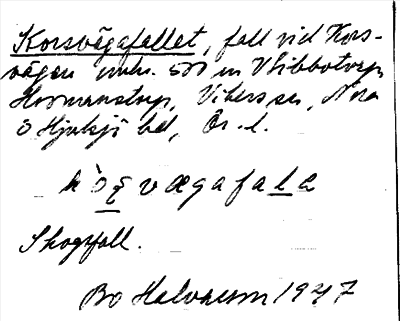 Korsvägafallet, fall vid Kors-
vägen 500 m V Sibbotorp,
Hermanstorp, Vikers sn, Nora
o Hjulsjö bd, Ör. l.
vægafala
Skogsfall.
Bo Halvarson 1947